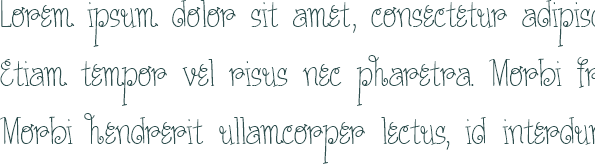 Lorem ipsum dolor sit amet, consectetur adipisc
Etiam tempor vel risus nec pharetra. Morbi fr
Morbi hendrerit ullamcorper lectus, id interdum